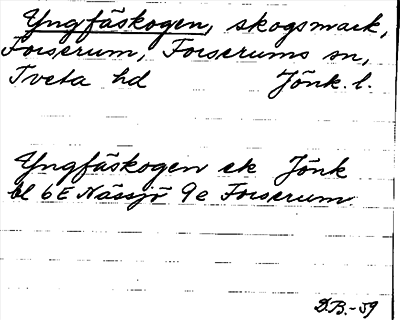 Yngfäskogen, skogsmark,
Forserum, Forserums sn,
Tveta hd Jönk. l.
Yngfäskogen ek Jönk
bl 6E Nässjö 9e Forserum.
D.B.-59